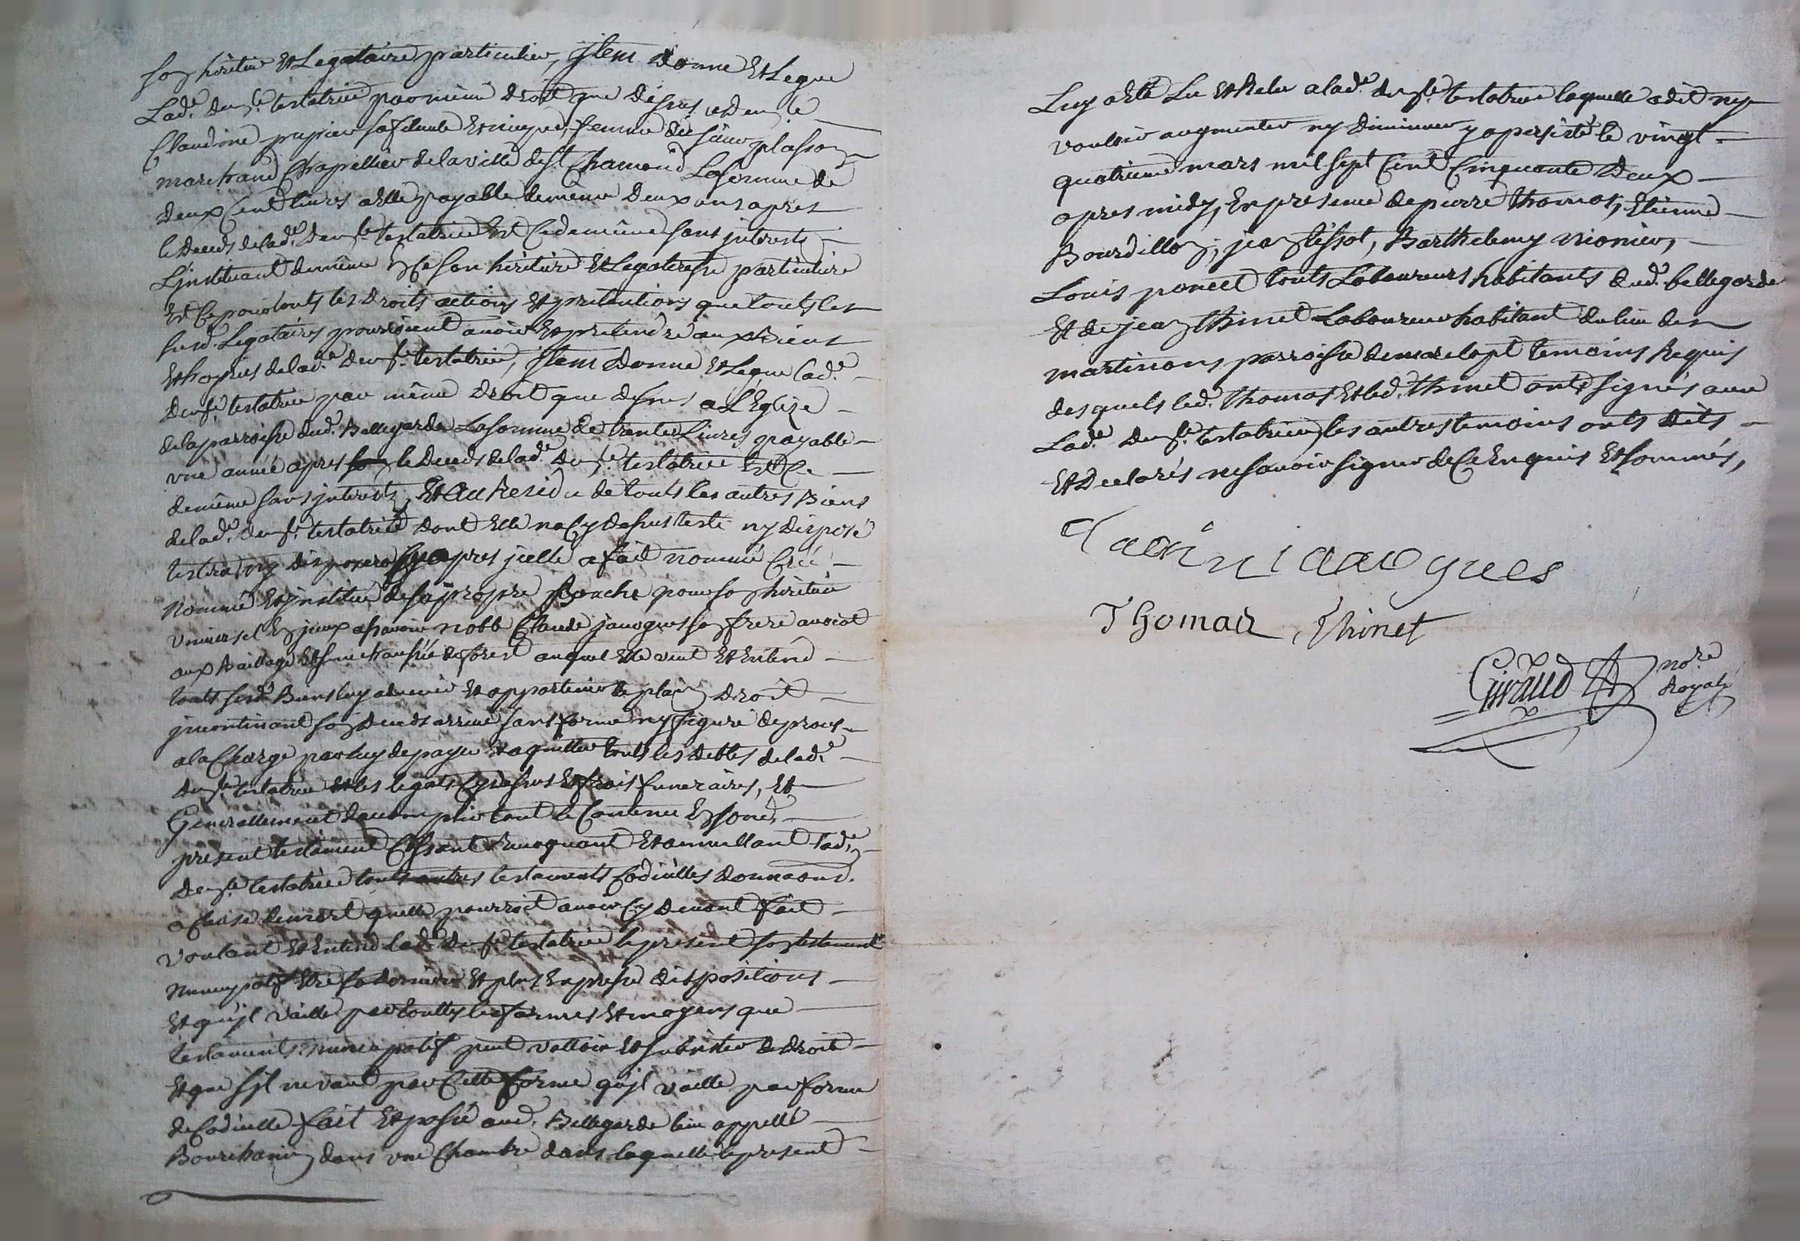 son héritier Et Legataire particulier, Item donne Et Legue
Lad.e dem.lle testatrice par même droit que dessus a dem.lle
Claudine papier sa filleule Et niepce, femme du sieur plasson
marchand Chapellier de la ville de S.t Chamond La somme de
deux Cent livres a Elle payable de même deux ans apres
le deceds de lad.e dem.lle testatrice Et Ce de même sans interets
L'jnstituant de même En Ce son héritiere Et Legateresse particuliere
Et Ce pour touts les droits actions Et pretentions que touts les
susd. Legataires pourroient avoir Et pretendre aux Biens
Et hoyries de lad.e dem.lle testatrice, Item Donne Et Legue lad.e
dem.lle testatrice par même droit que dessus a L'Eglize
de la parroisse dud. Bellegarde La somme de trente Livres payable
une année apres le deceds de lad.e dem.lle testatrice Et Ce
de même sans interets, Et au Residu de touts les autres Biens
de lad.e dem.lle testatrice dont Elle na Cy dessus testé ny disposé
testera ny disposera Cy apres jcelle a fait nommé Créé
Nommé Et jnstitué de sa propre Bouche pour son héritier
universel En jceux assavoir noble Claude janogues son frere avocat
aux Bailliage Et senechaussée de forest auquel Elle veut Et Entend
touts sesd. Biens luy advenir Et appartenir de plain droit
jncontinant son deceds arrivé sans forme ny figure de proces
a la Charge par luy de payer Et aquitter touts les debtes de lad.e
dem.lle testatrice Et les legats Cy dessus Et frais funeraires, Et
Generallement d'accomplir tout le Contenu En sond.
present testament Cassant Revoquant Et annullant lad.e
dem.lle testatrice touts autres testaments Codicilles donnaons
a Cause de mort quelle pourroit avoir Cy devant fait
Voulant Et Entend lad.e dem.lle testatrice le present son testament
nuncupatif Etre sa derniere Et plus Expresse dispositions
Et qu'jl vaille par touttes les formes Et moyens que
testaments nuncupatif peut valloir Et subsister de droit
Et que s'jl ne vaut par Cette forme qu'jl vaille par forme
de Codicille fait Et passé aud. Bellegarde lieu appellé
Bourchanin dans une Chambre dans laquelle le present
Luy a Eté Lu Et Relu a lad.e dem.lle testatrice laquelle a dit ny
vouloir augmenter ny diminuer y a persisté le vingt
quatrieme mars mil sept Cent Cinquante deux
apres midy, En presence de pierre Thomas, Etienne
Bourdillon, jean tissot, Barthelemy Vionier,
Louis poncet touts Laboureurs habitants dud. bellegarde
Et de jean thinet Laboureur habitant du lieu des
martinons parroisse de marclopt temoins Requis
desquels led. Thomas Et led. thinet ont signés avec
Lad.e dem.lle testatrice, les autres temoins onts dits
Et Declarés ne savoir signer de Ce Enquis Et sommés,
janogues
Thomas Thinet
Giraud
no.re
Royal